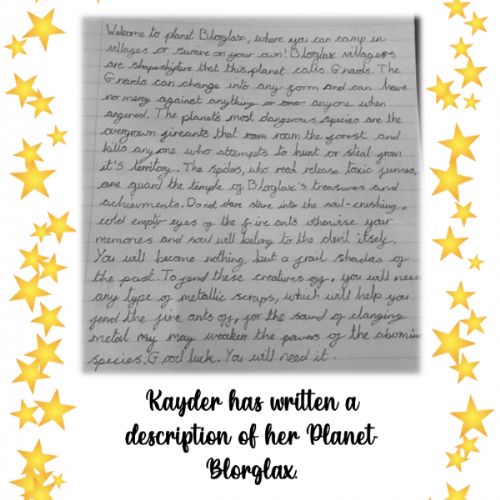 Welcome to planet Blorglax, where you can camp in
villages or survive on your own! Blorglax villagers
are shapeshifters that this planet calls Gnards. The
Gnards can change into any form and can have
no mercy against anything or anyone when
angered. The planet's most dangerous species are the
overgrown fireants that roam the forest and
kills any one who attempts to hunt or steal from
it's territory. The spides, who release toxic fumes,
are guard the temple of Blorglax's treasures and
achievments. Do not stare into the soul-crushing,
cold empty eyes of the fire ants otherwise your
memories and soul will belong to the devil itself.
You will become nothing but a frail shadas of
the past. To fend these creatures off, you will need
any type of metallic scraps, which will help you
fend the fire ants off, for the sound of clanging
metal may weaken the powers of the abomin
species. Good luck. You will need it.
Kayder has written a
description of her Planet
Blorglax.